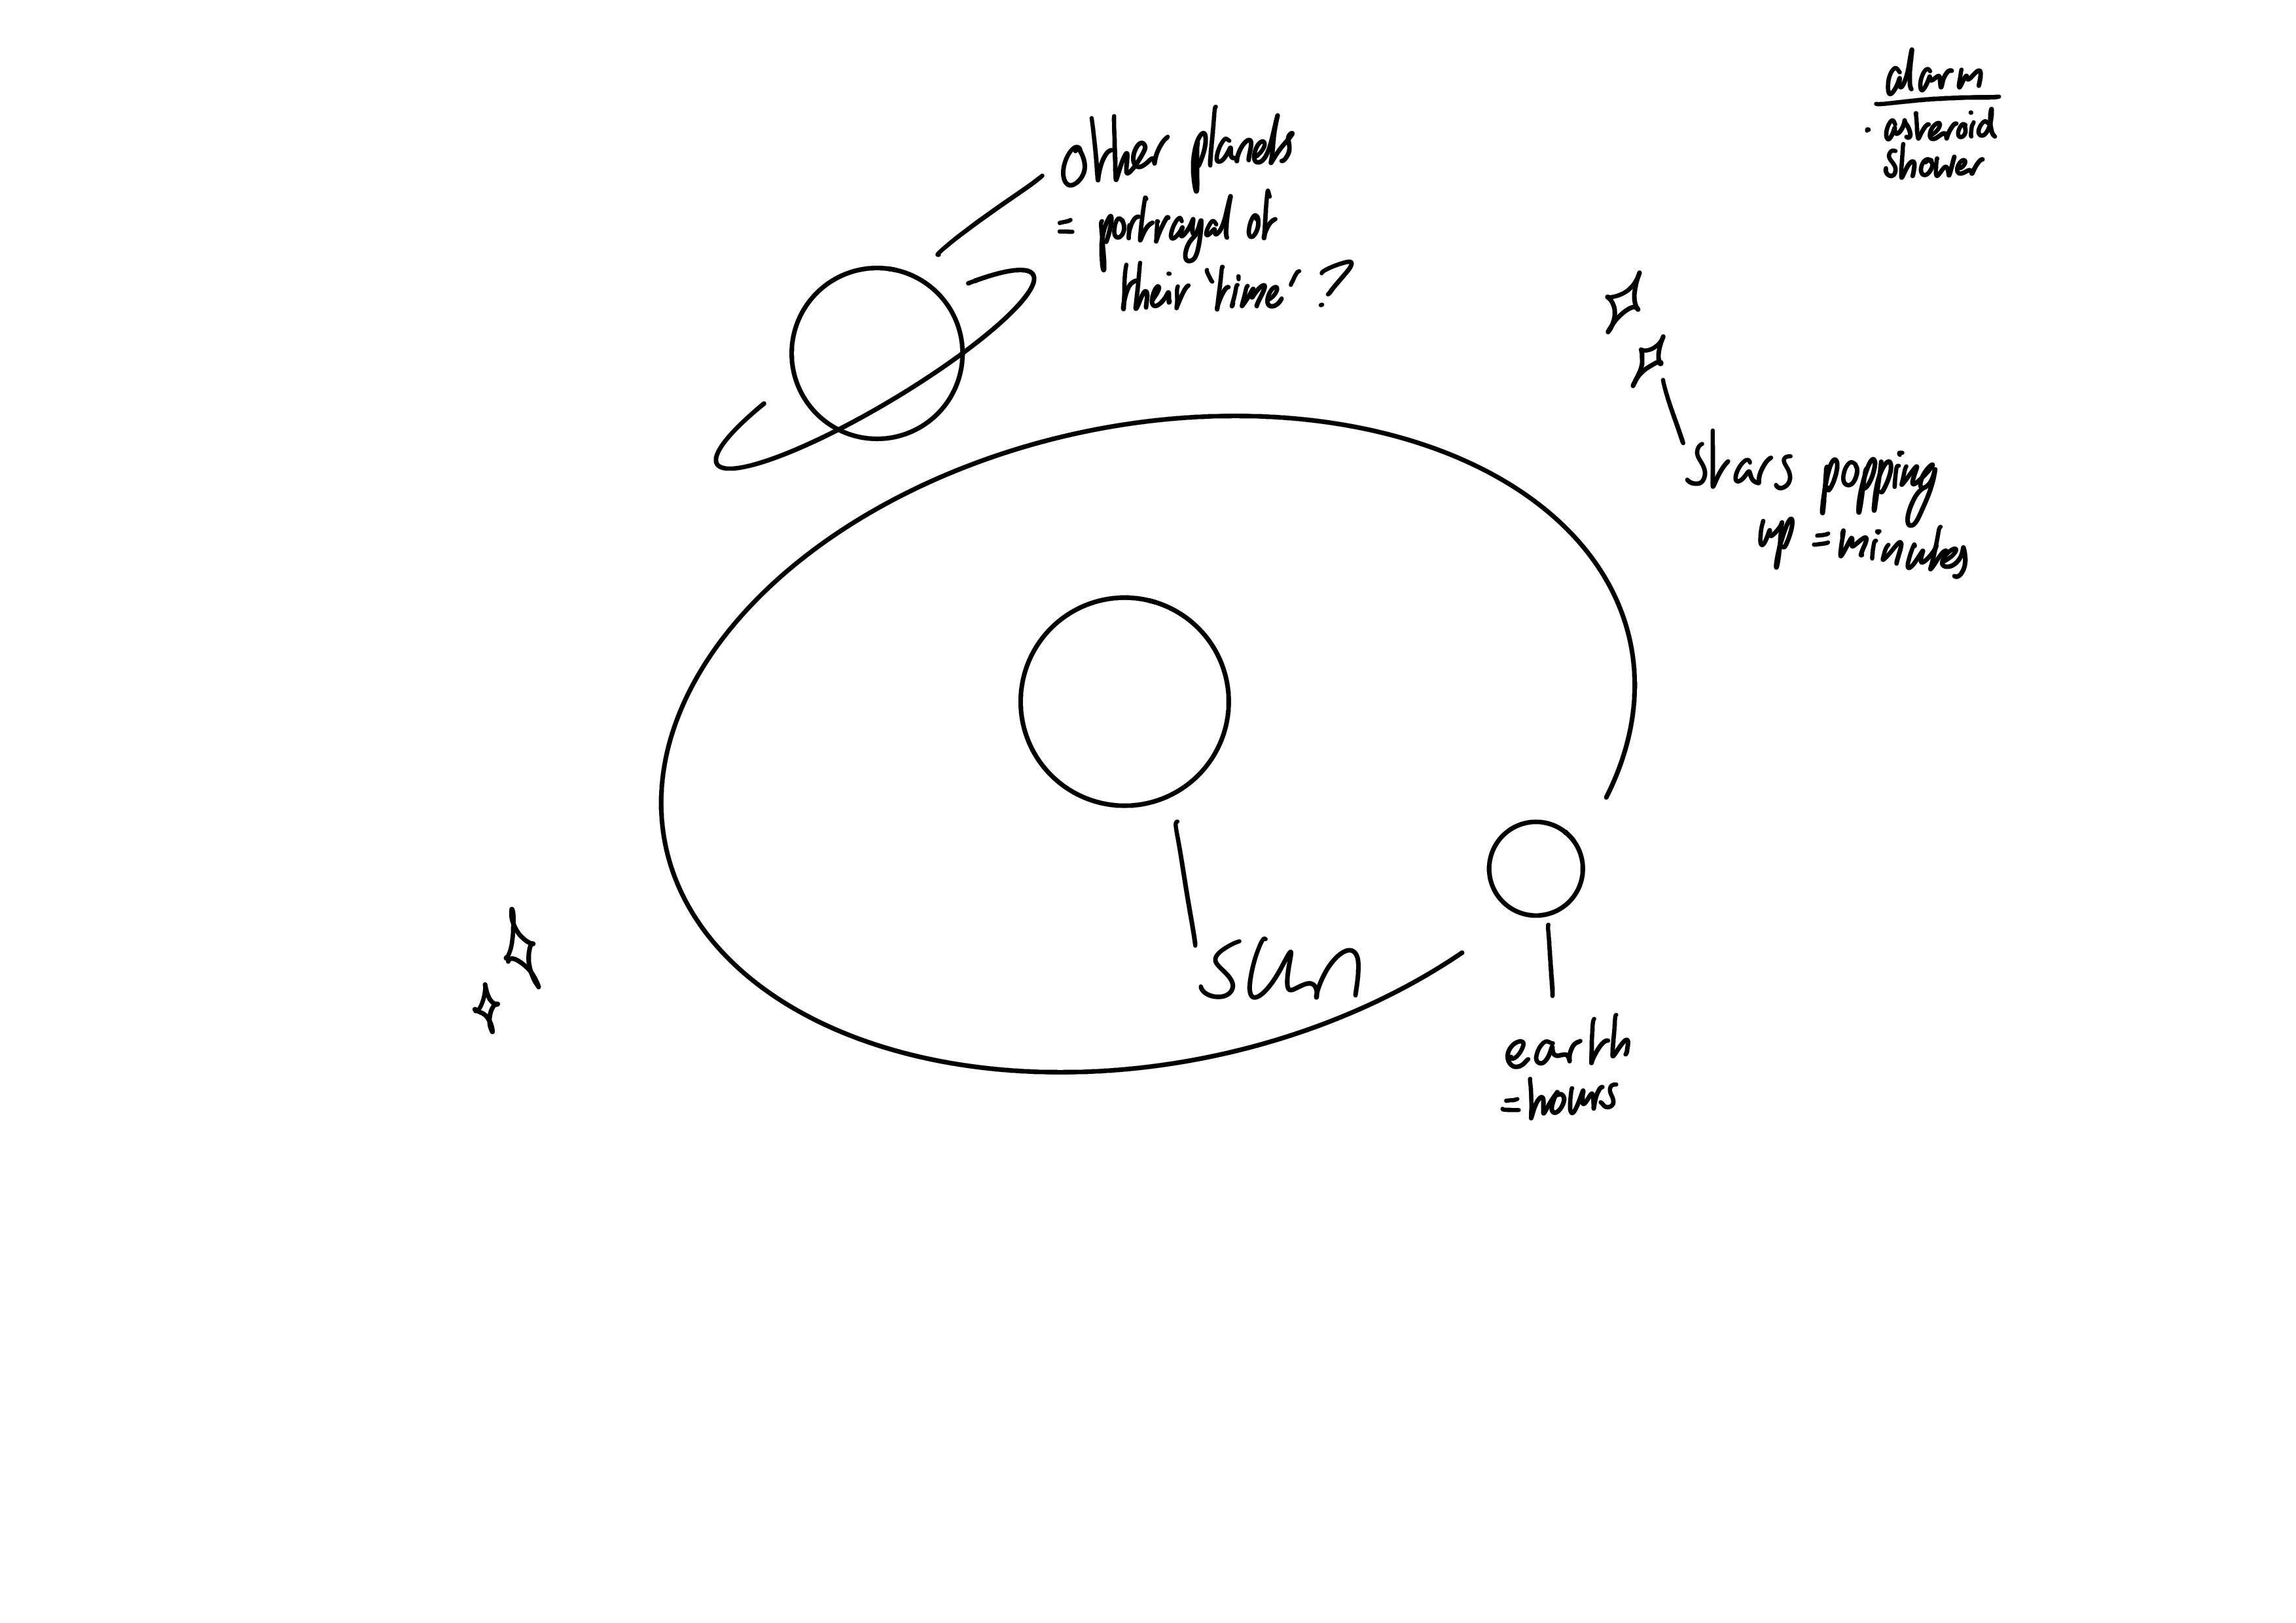 alarm
· asteroid
shower
other planets
= portrayal of
their 'time' ?
stars popping
up = minutes
sun
earth
= hours